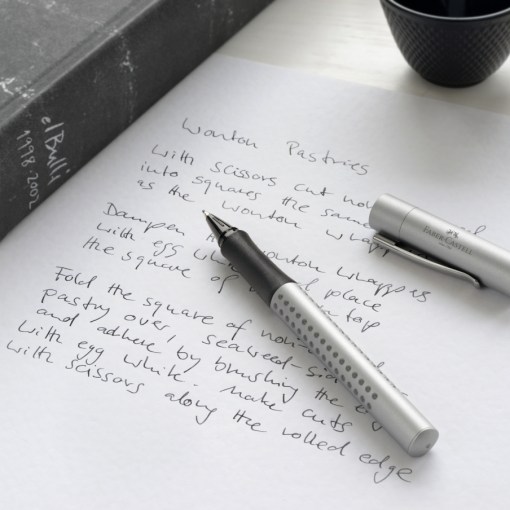 elBulli
1998-2002
Wonton Pastries
With scissors cut
into squares the same
as the wonton
Dampen wonton whappers
with egg place
the square of on top
Fold the square of
pastry over, seaweed-
and adhere by brushing the
with egg white. Make cuts
with scissors along the rolled edge
FABER-CASTELL